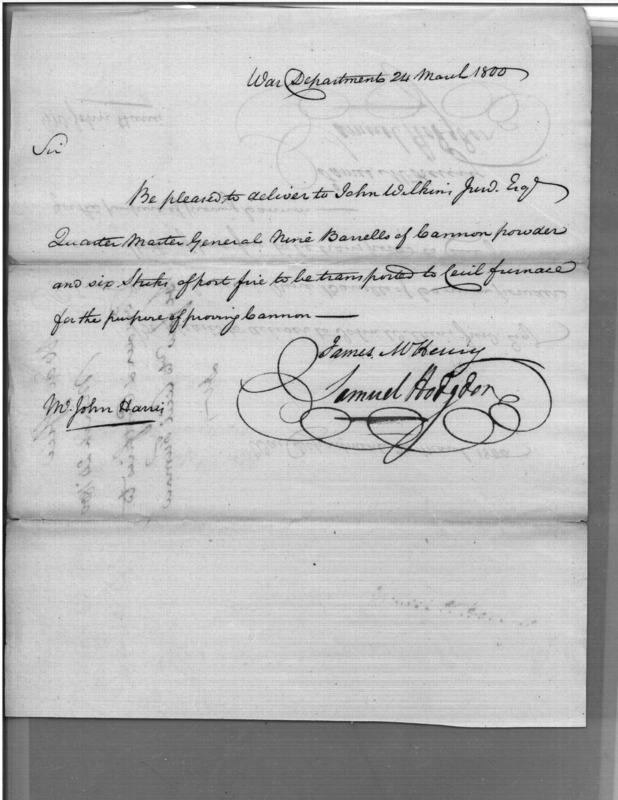 War Department 24 March 1800
Sir
Be pleased to deliver to John Wilkins Junr. Esqr
Quarter Master General Nine Barrells of Cannon powder
and six Sticks of port fire to be transported to Cecil furnace
for the purpose of proving Cannon —
James McHenry
Samuel Hodgdon
Mr. John Harris